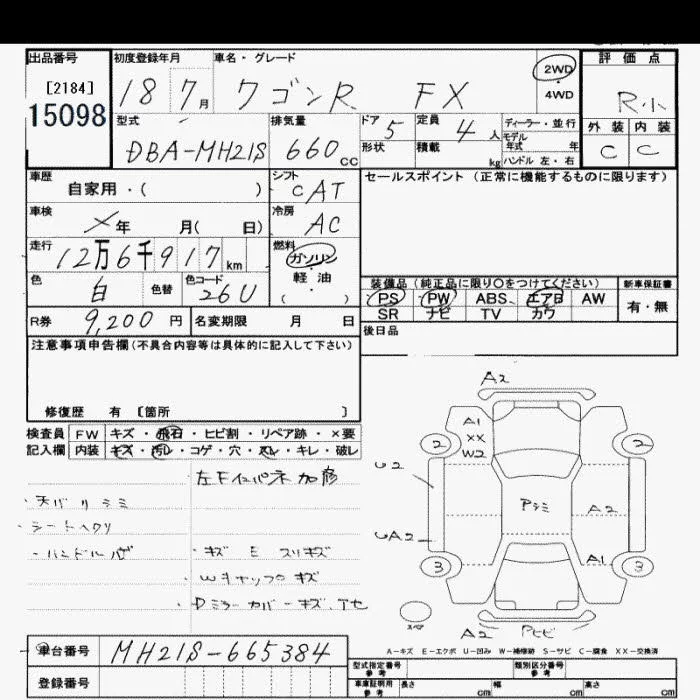 出品番号 初度登録年月 車名・グレード 評価点
[2184] 18 7月 ワゴンR FX 2WD・4WD R小
15098
型式 排気量 ドア 5 定員 4人 ディーラー・並行 外装 内装
DBA-MH21S 660cc 形状 積載 kg モデル年式 年 ハンドル 左・右 C C
車歴 シフト セールスポイント(正常に機能するものに限ります)
自家用・( ) CAT
車検 冷房
メ年 月( 日) AC
走行 燃料
12万6千917km ガソリン・軽油・( )
色 色替 色コード 装備品(純正品に限り○をつけてください) 新車保証書
白 26U PS PW ABS エアB AW 有・無
SR ナビ TV カワ
R券 9,200円 名変期限 月 日 後日品
注意事項申告欄(不具合内容等は具体的に記入して下さい)
修復歴 有 〔箇所 〕
検査員 FW キズ・飛石・ヒビ割・リペア跡・×要
記入欄 内装 キズ・汚レ・コゲ・穴・スレ・キレ・破レ
・天バリシミ
・シートヘタリ
・キズ E スリキズ
・Wキャップキズ
・Dミラーカバーキズ
A2
A1
XX
W2
2 2
U2
Pシミ A2
UA2
A1
3 3
スペア
A2
A-キズ E-エクボ U-凹み W-補修跡 S-サビ C-腐食 XX-交換済
車台番号 MH21S-665384
登録番号
型式指定番号 参考 類別区分番号 参考
車庫証明用 参考 長さ cm 幅 cm 高さ cm